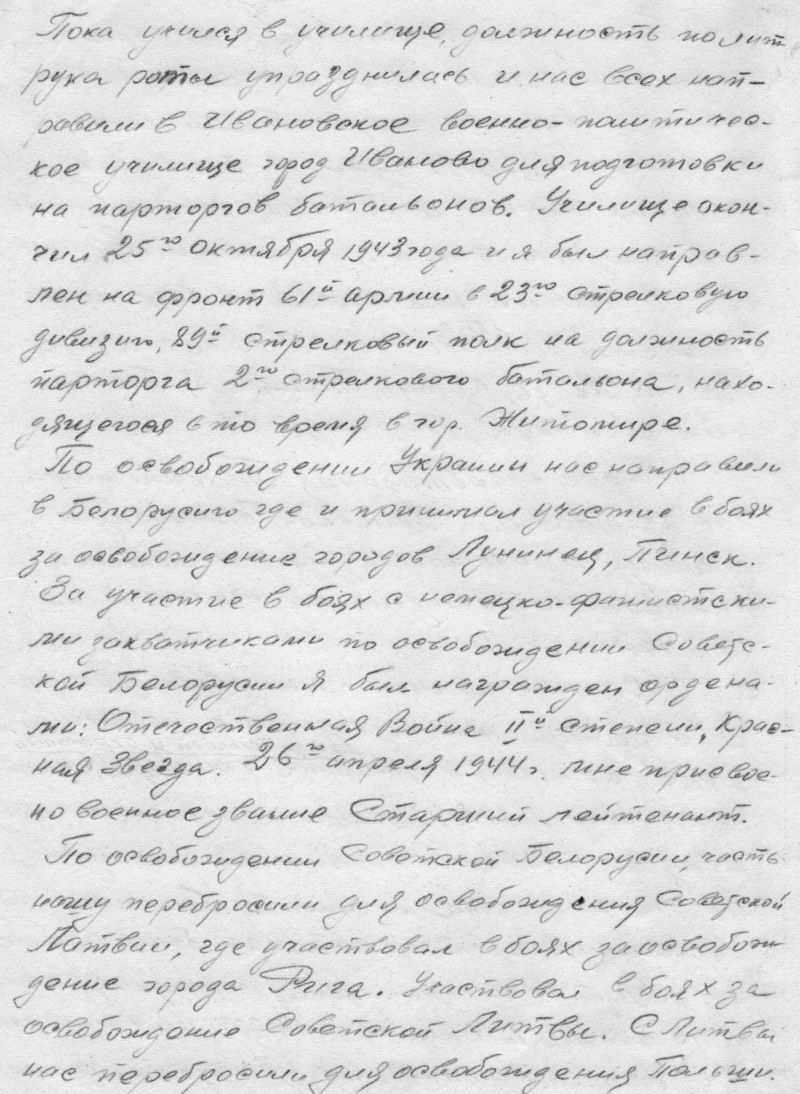 Пока учился в училище, должность полит
рука роты упразднилась и нас всех нап-
равили в Ивановское военно-политичес-
кое училище город Иваново для подготовки
на парторгов батальонов. Училище окон-
чил 25го октября 1943 года и я был направ-
лен на фронт 61й армии в 23ю стрелковую
дивизию, 89й стрелковый полк на должность
парторга 2го стрелкового батальона, нахо-
дящегося в то время в гор. Житомире.
По освобождении Украины нас направили
в Белорусию где и принимал участие в боях
за освобождение городов Лунинец, Пинск.
За участие в боях с немецко-фашистски-
ми захватчиками по освобождении Советс-
кой Белорусии я был награжден ордена-
ми: Отечественная Война IIй степени, Крас-
ная Звезда. 26го апреля 1944 г. мне присвое-
но военное звание Старший лейтенант.
По освобождении Советской Белорусии, часть
нашу перебросили для освобождения Советской
Латвии, где участвовал в боях за освобож
дение города Рига. Участвовал в боях за
освобождение Советской Литвы. С Литвы
нас перебросили для освобождения Польши.